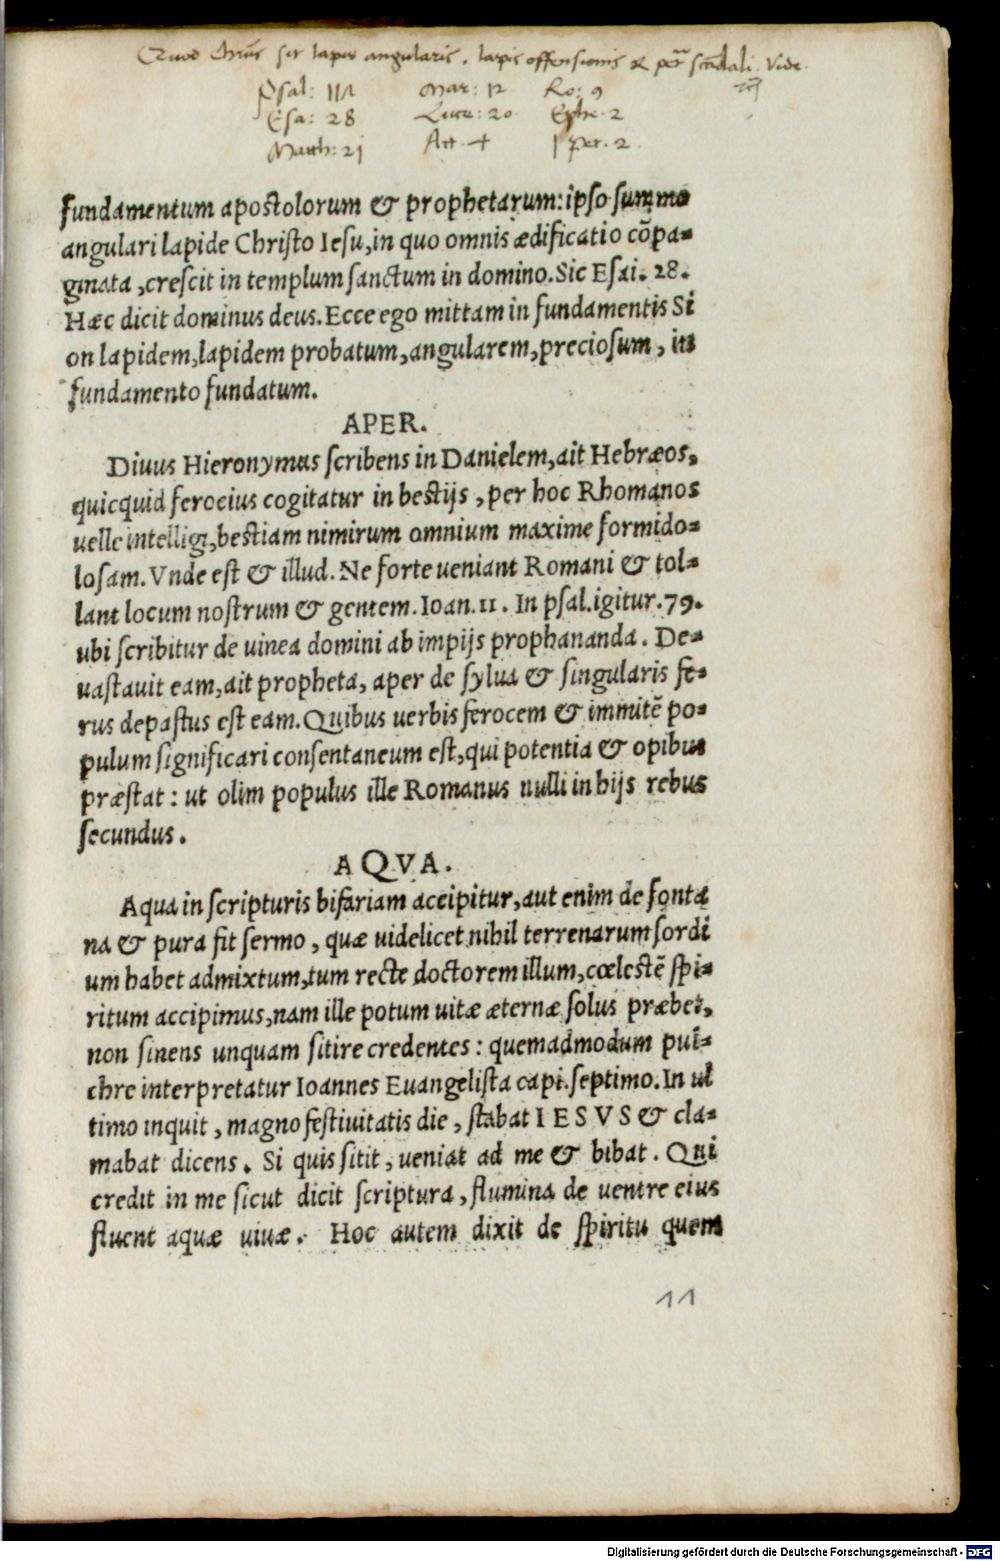 Quod Christus sit lapis angularis, lapis offensionis & petra scandali. Vide
Psal: 117 Mar: 12 Ro: 9
Esa: 28 Luce: 20 Ephe. 2
Matth: 21 Act. 4 1 Pet. 2
fundamentum apostolorum & prophetarum: ipso summo
angulari lapide Christo Iesu, in quo omnis ædificatio cõpa-
ginata, crescit in templum sanctum in domino. Sic Esai. 28.
Hæc dicit dominus deus. Ecce ego mittam in fundamentis Si
on lapidem, lapidem probatum, angularem, preciosum, in
fundamento fundatum.
APER.
Diuus Hieronymus scribens in Danielem, ait Hebræos,
quicquid ferocius cogitatur in bestijs, per hoc Rhomanos
uelle intelligi, bestiam nimirum omnium maxime formido-
losam. Vnde est & illud. Ne forte ueniant Romani & tol-
lant locum nostrum & gentem. Ioan. 11. In psal. igitur. 79.
ubi scribitur de uinea domini ab impijs prophananda. De-
uastauit eam, ait propheta, aper de sylua & singularis fe-
rus depastus est eam. Quibus uerbis ferocem & immitē po-
pulum significari consentaneum est, qui potentia & opibus
præstat: ut olim populus ille Romanus nulli in hijs rebus
secundus.
AQVA.
Aqua in scripturis bifariam accipitur, aut enim de fonta
na & pura fit sermo, quæ uidelicet nihil terrenarum sordi
um habet admixtum, tum recte doctorem illum, cœlestē spi-
ritum accipimus, nam ille potum uitæ æternæ solus præbet,
non sinens unquam sitire credentes: quemadmodum pul-
chre interpretatur Ioannes Euangelista capi. septimo. In ul
timo inquit, magno festiuitatis die, stabat IESVS & cla-
mabat dicens. Si quis sitit, ueniat ad me & bibat. Qui
credit in me sicut dicit scriptura, flumina de uentre eius
fluent aquæ uiuæ. Hoc autem dixit de spiritu quem
11
Digitalisierung gefördert durch die Deutsche Forschungsgemeinschaft - DFG